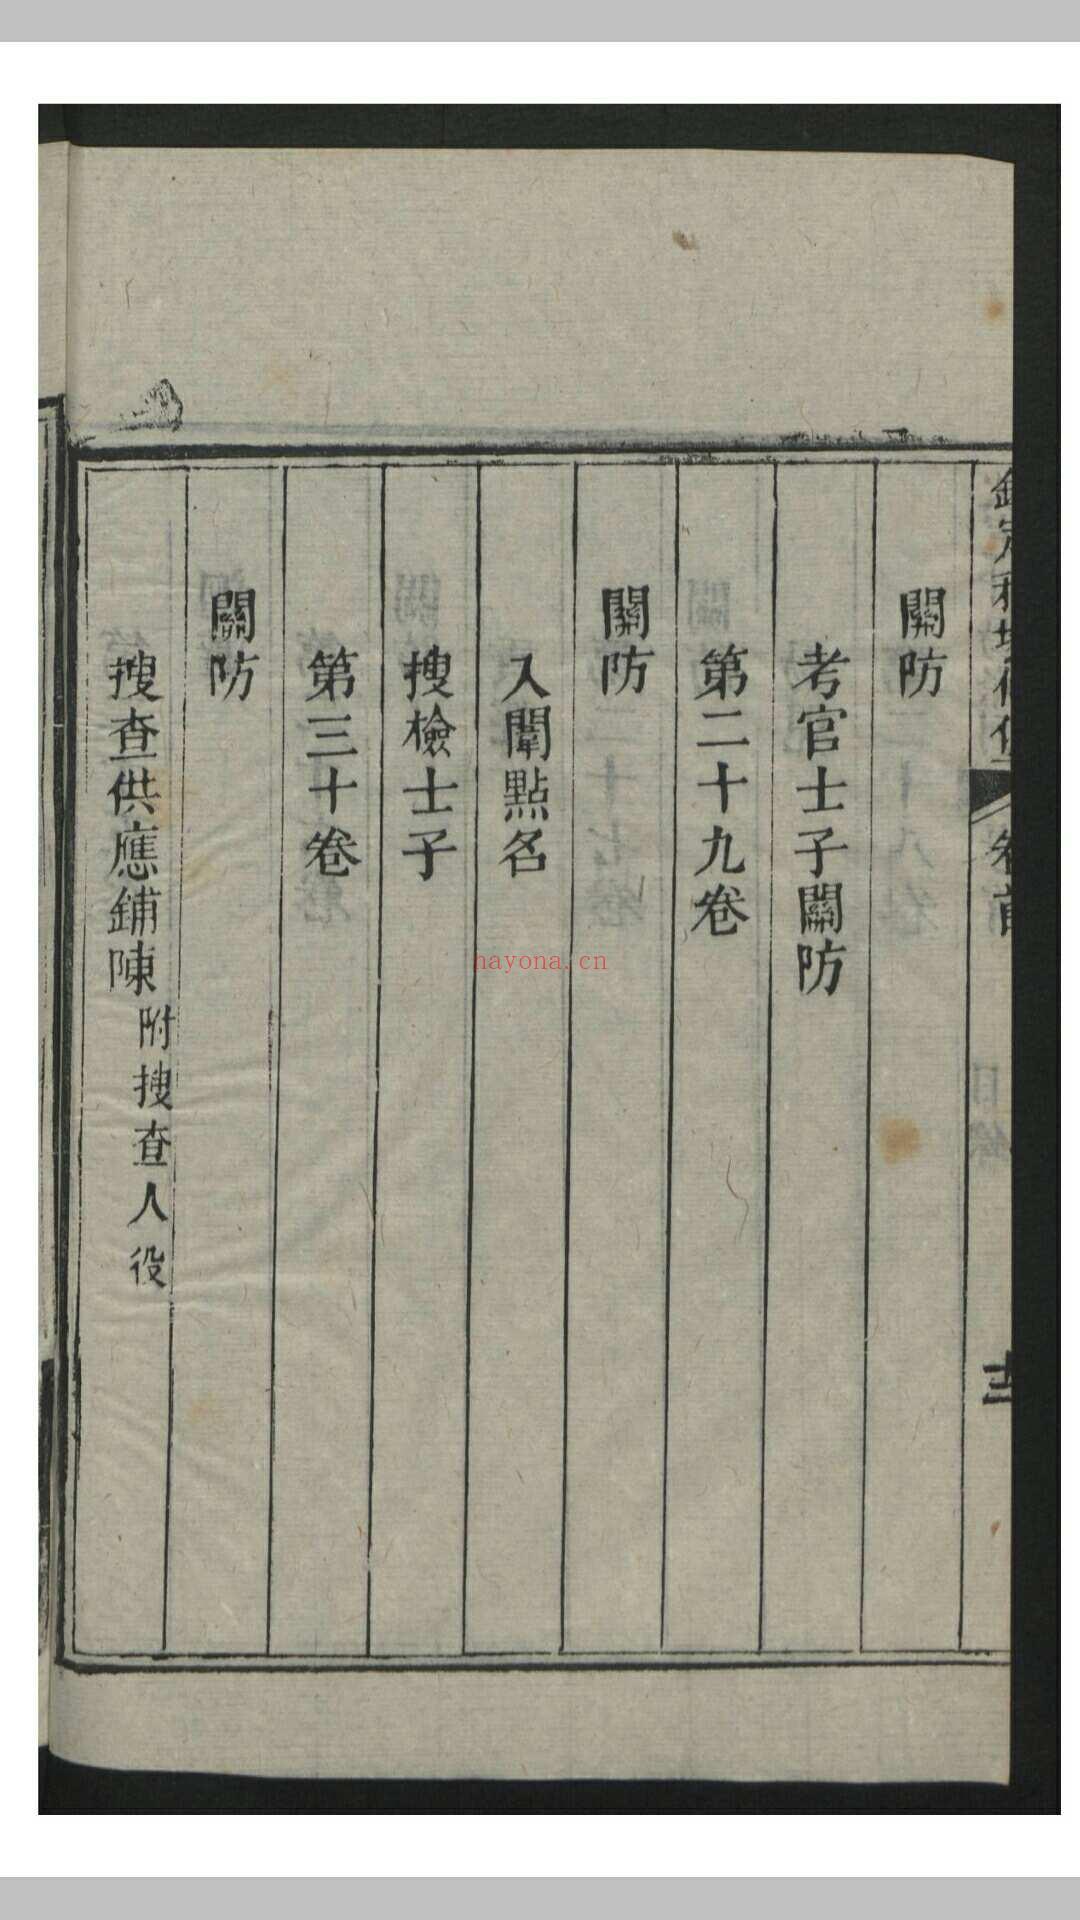 關防
考官士子關防
第二十九卷
關防
入闈點名
搜檢士子
第三十卷
關防
搜查供應鋪陳附搜查人役
hayona.cn